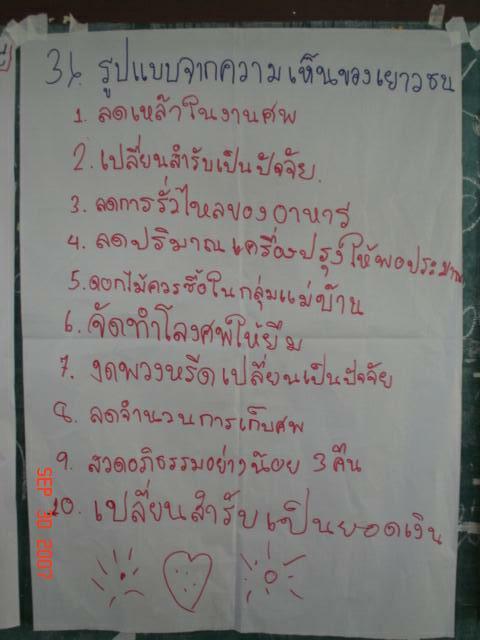 36 รูปแบบจากความเห็นของเยาวชน
1. ลดเหล้าในงานศพ
2. เปลี่ยนสำรับเป็นปัจจัย.
3. ลดการรั่วไหลของอาหาร
4. ลดปริมาณเครื่องปรุงให้พอประมาณ
5. ดอกไม้ควรซื้อในกลุ่มแม่บ้าน
6. จัดทำโลงศพให้ยืม
7. งดพวงหรีดเปลี่ยนเป็นปัจจัย
8. ลดจำนวนการเก็บศพ
9. สวดอภิธรรมอย่างน้อย 3 คืน
10. เปลี่ยนสำรับเป็นยอดเงิน
SEP 30 2007